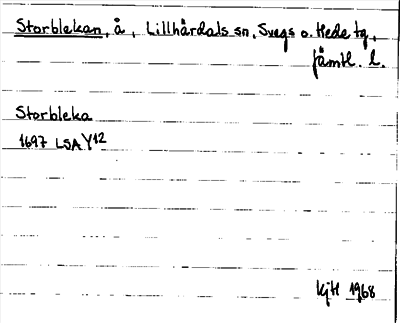 Storblekan, å, Lillhårdals sn, Svegs o. Hede tg,
Jämtl. l.
Storbleka
1697 LSA Y12
KjH 1968